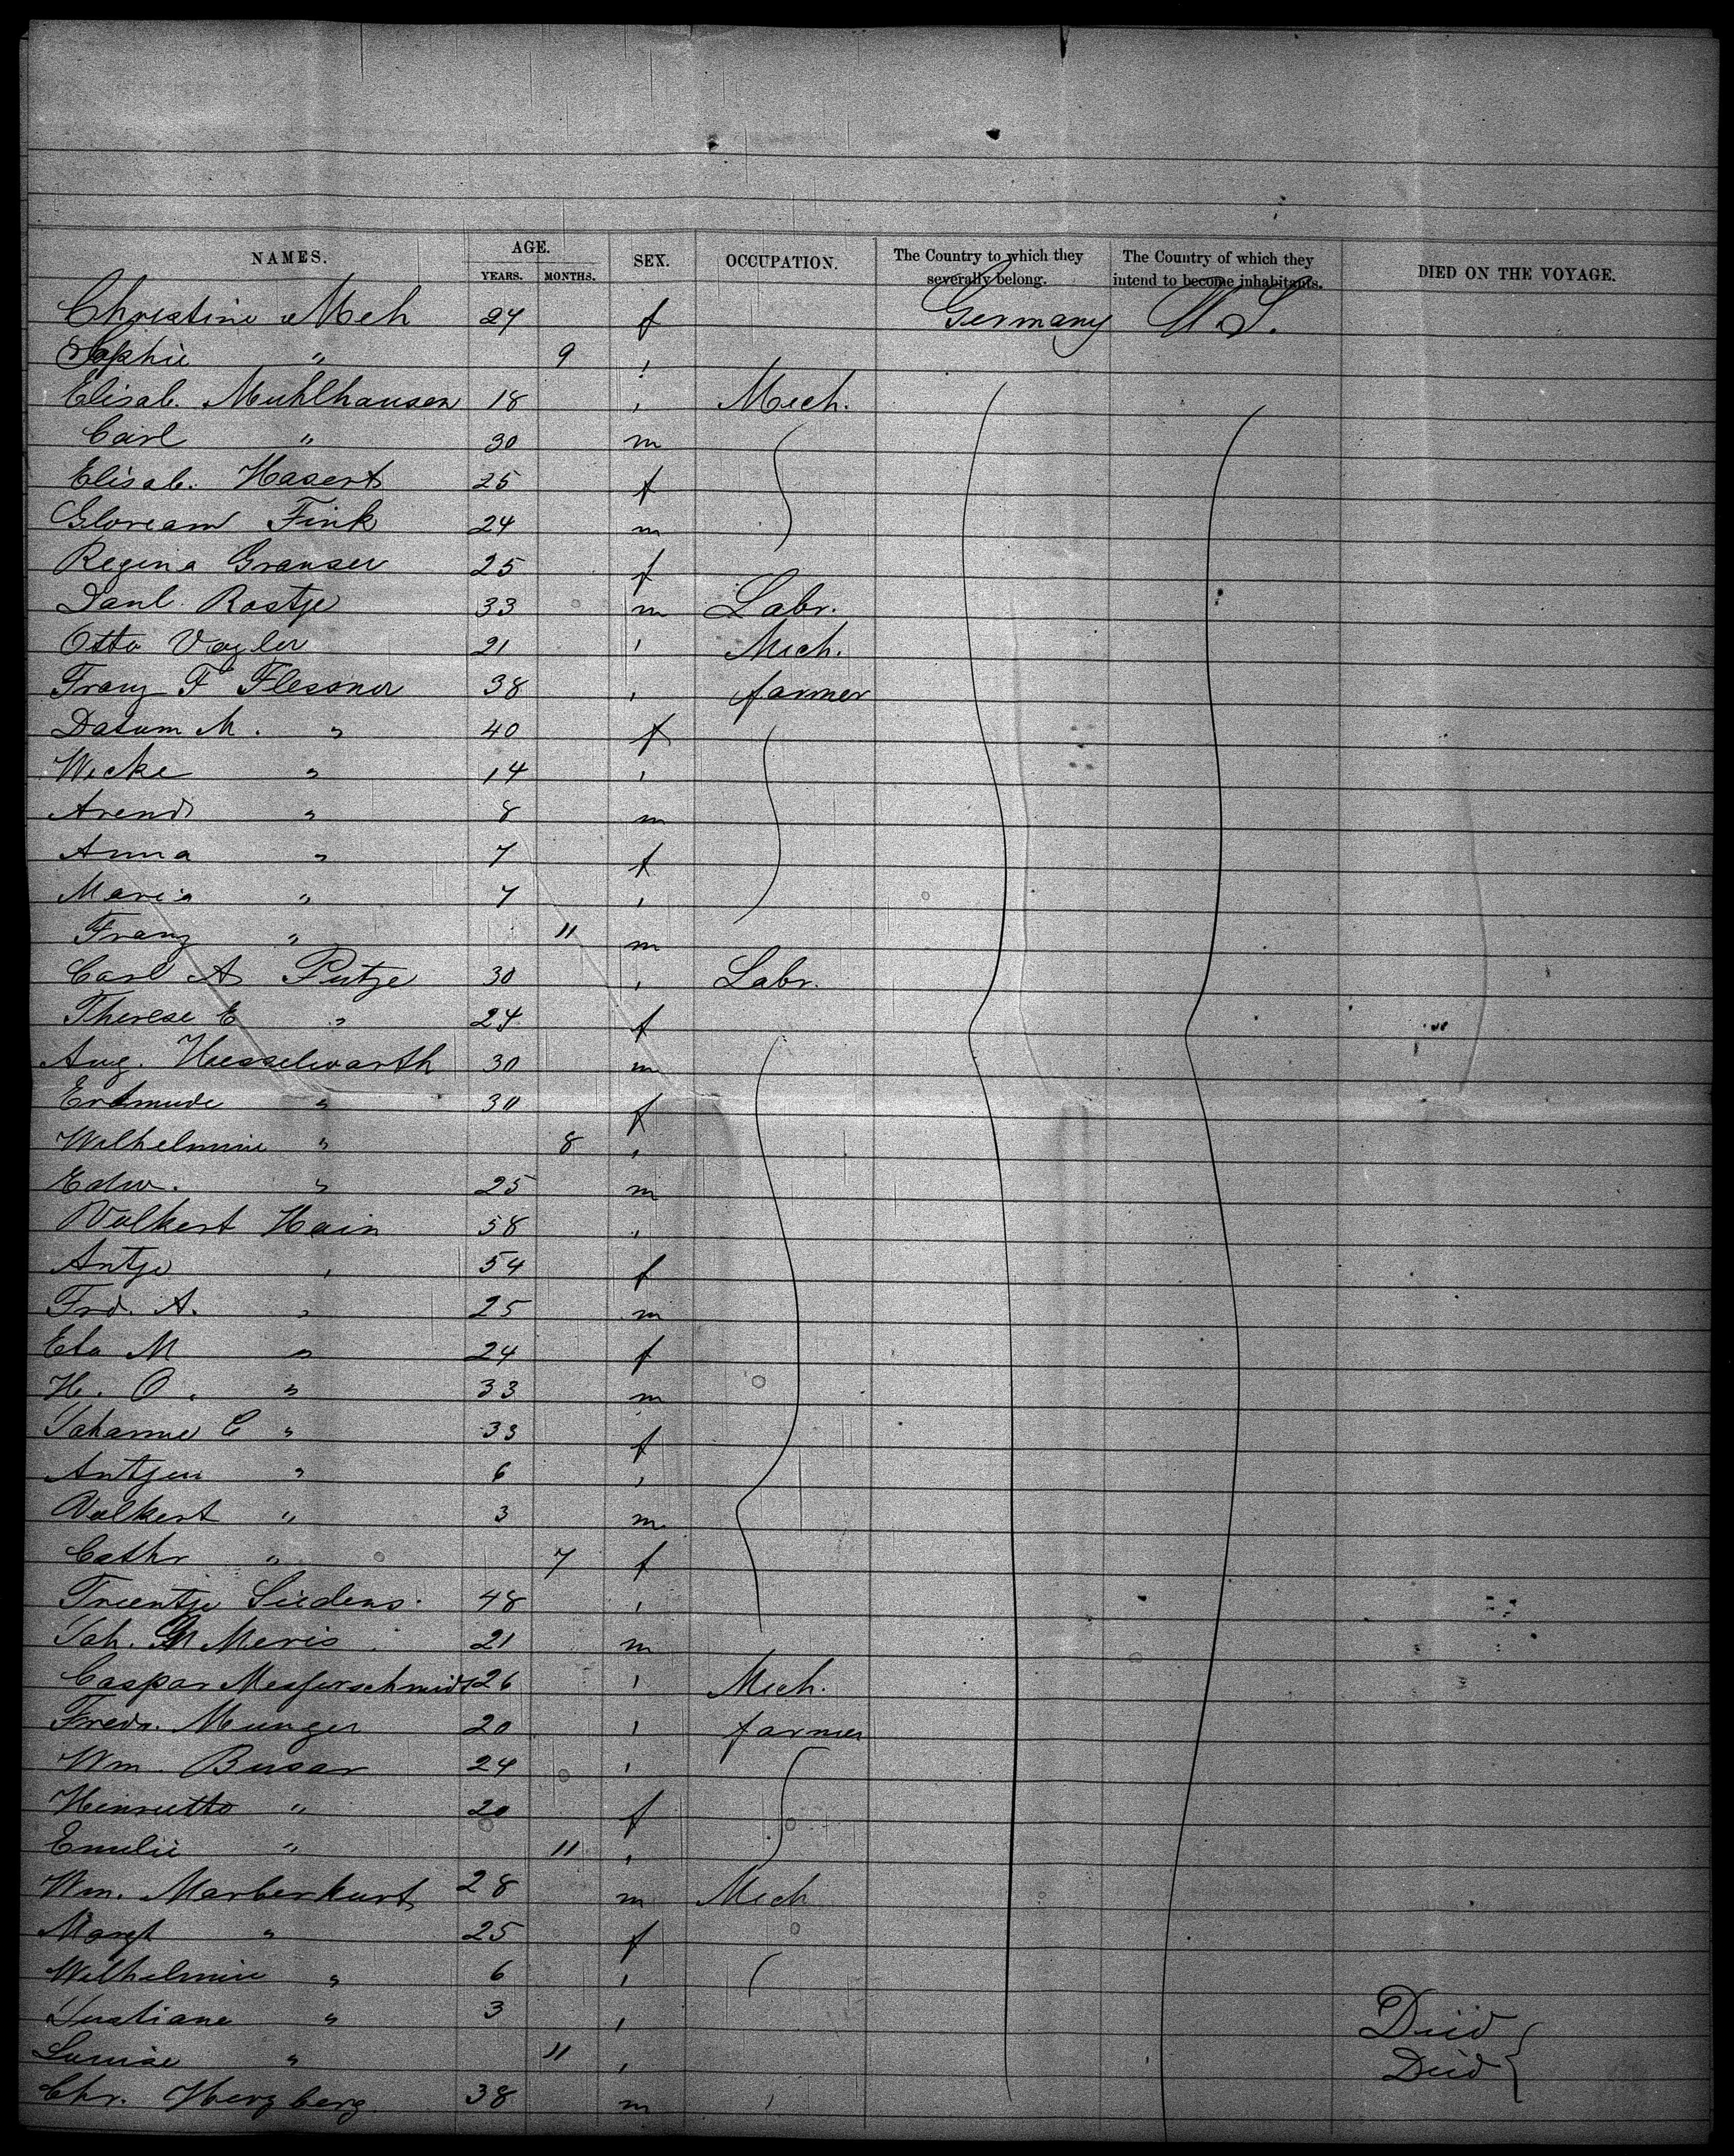 NAMES. AGE. SEX. OCCUPATION. The Country to which they severally belong. The Country of which they intend to become inhabitants. DIED ON THE VOYAGE.
YEARS. MONTHS.
Christine Meh 24 f Germany U S.
Sophie " 9 ,
Elisab. Muhlhausen 18 , Mech.
Carl " 30 m
Elisab. Hasert 25 f
Fink 24 m
Regina Granser 25 f
Danl. Rostje 33 m Labr.
Otto Vogler 21 , Mech.
Franz F Flessner 38 , farmer
M. " 40 f
Wicke " 14 ,
Arend " 8 m
Anna " 7 f
Maria " 7 ,
Franz " 11 m
Carl A Putze 30 , Labr.
Therese E " 24 f
Aug. Hesselwarth 30 m
Erdmude " 30 f
Wilhelmine " 8 ,
Edw. " 25 m
Volkert Hain 58 ,
Antje " 54 f
Frd. A. " 25 m
Eta M " 24 f
H. O. " 33 m
Johanne C " 33 f
Antjen " 6 ,
Volkert " 3 m
Cathr " 7 f
Treentje Siedens. 48 ,
Joh. Meris 21 m
Caspar Messerschmidt 26 , Mech.
Fredr. Munger 20 , farmer
Wm. Busar 24 ,
Henriette " 20 f
Emilie " 11 ,
Wm. Marberkurt 28 m Mech
Margt " 25 f
Wilhelmine " 6 ,
Justiane " 3 , Died
Louise " 11 , Died
Chr. Herzberg. 38 m ,